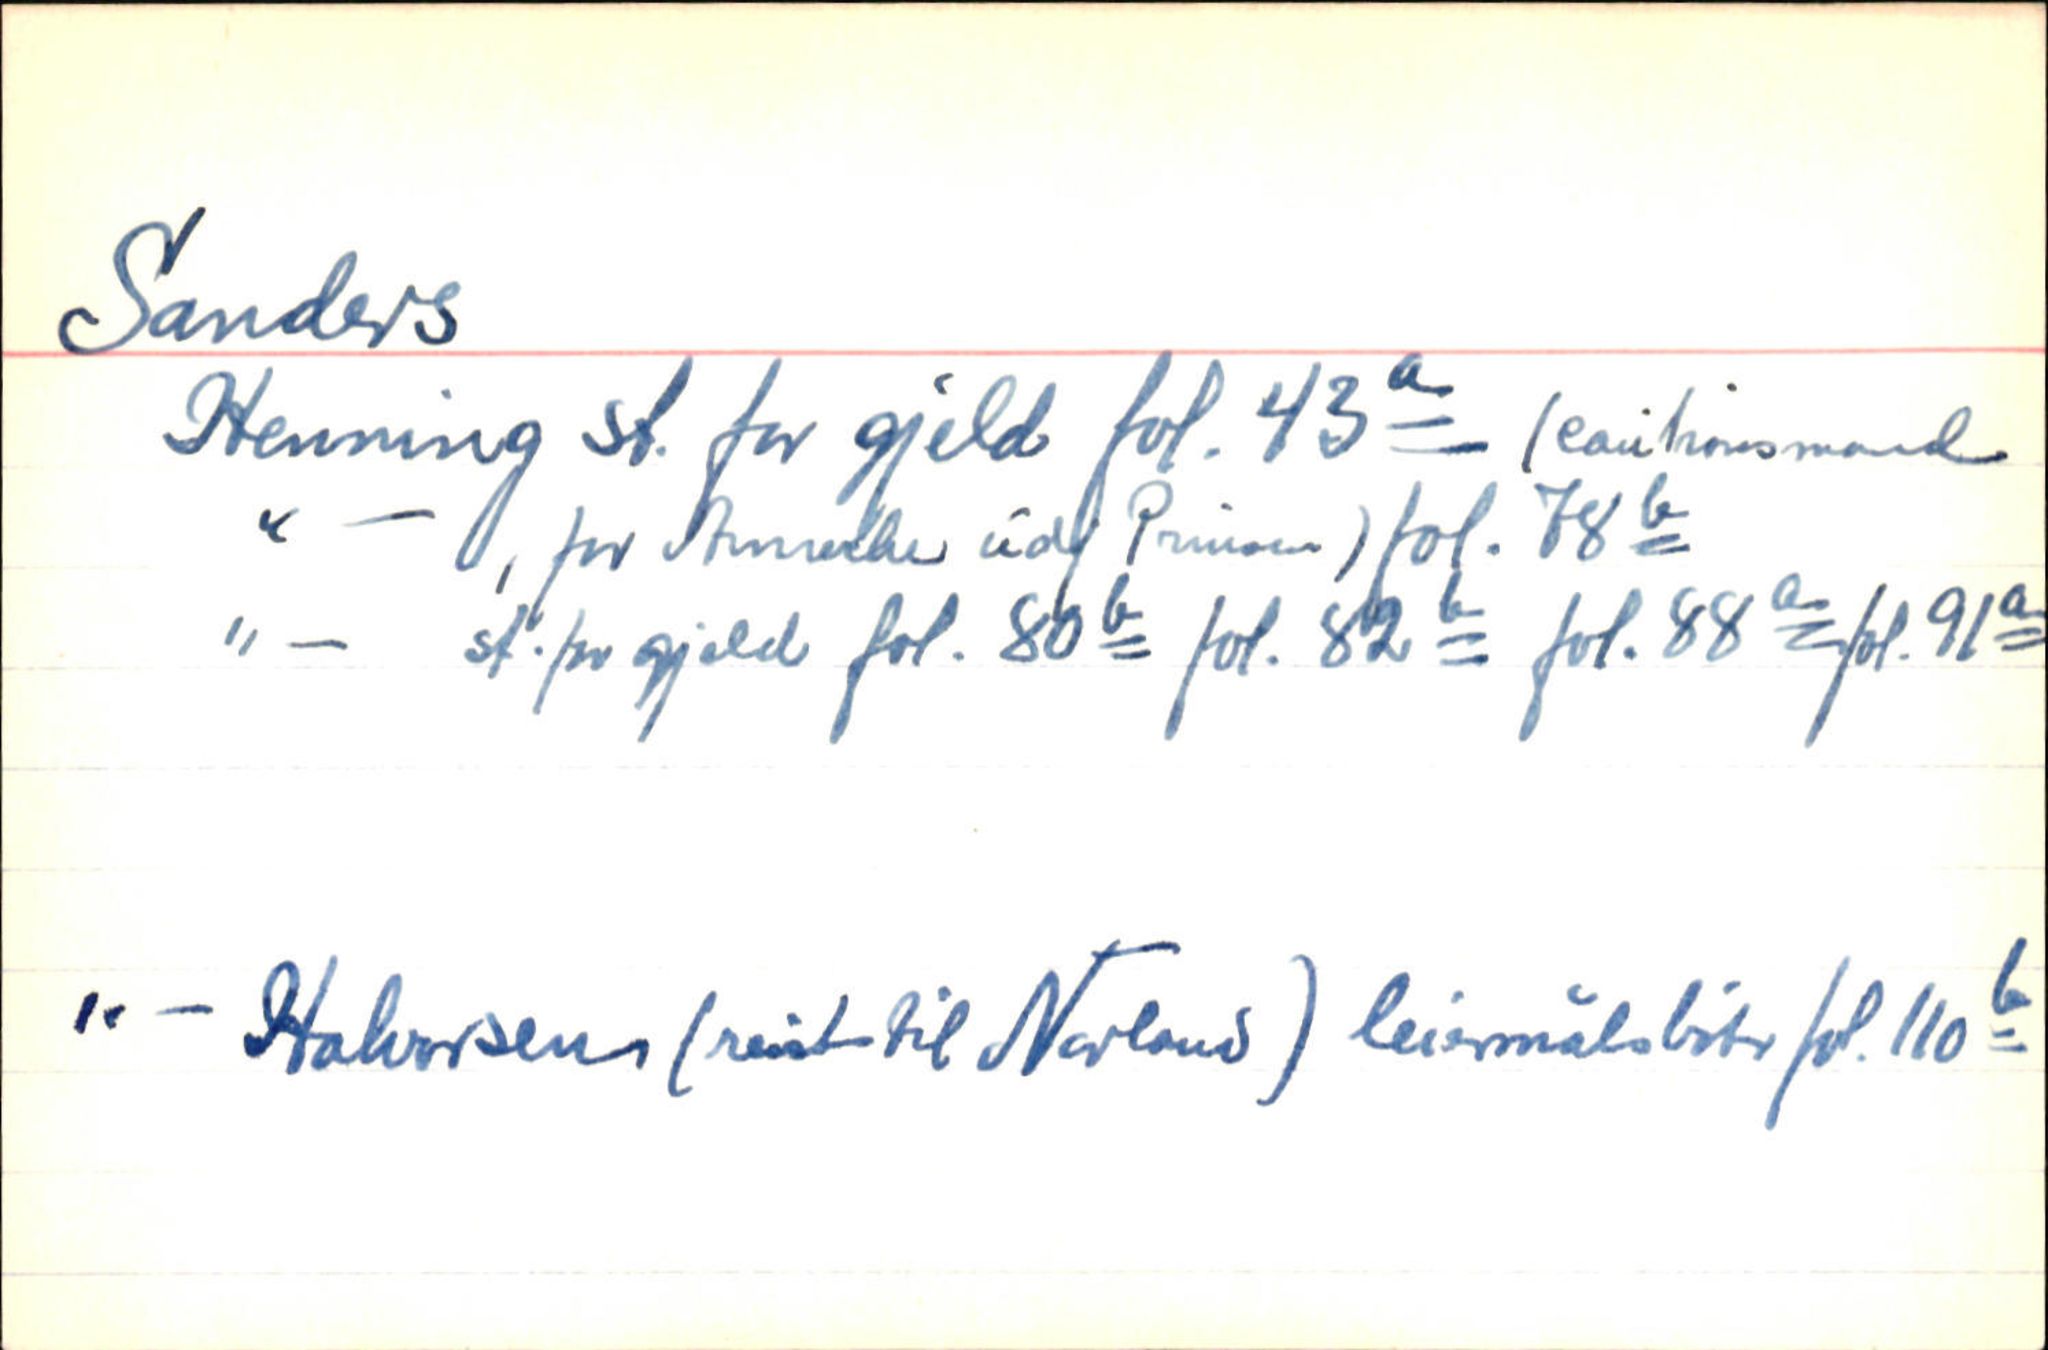 Sanders
Henning st. for gjeld fol. 43a (cautionsmand
" — , for Annecke udj Prinsen) fol. 78b
" — st. for gjeld fol. 80b fol. 82b fol. 88a fol. 91a
" — Halvorsen (reist til Norland) leiermålsbøter fol. 110b